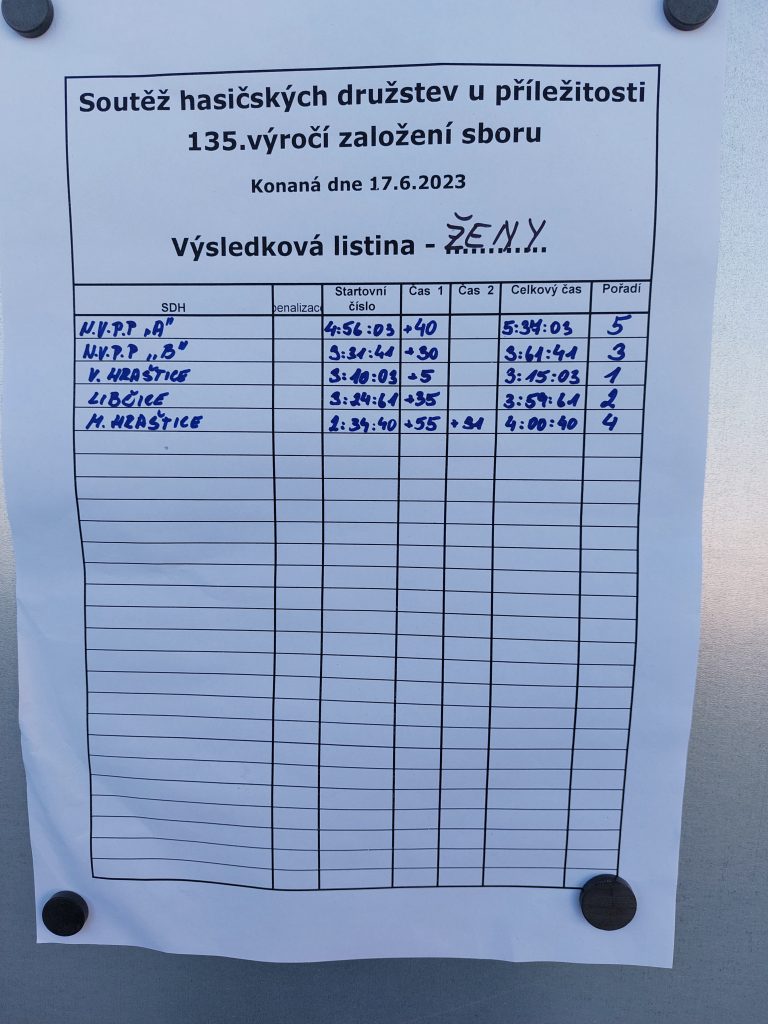 Soutěž hasičských družstev u příležitosti
135.výročí založení sboru
Konaná dne 17.6.2023
Výsledková listina - ŽENY
SDH enalizace Startovní číslo Čas 1 Čas 2 Celkový čas Pořadí
N.V.P.P „A" 4:56:03 +40 5:37:03 5
N.V.P.P „B" 3:31:41 +30 3:61:41 3
V. HRAŠTICE 3:10:03 +5 3:15:03 1
LIBČICE 3:24:61 +35 3:59:61 2
M. HRAŠTICE 2:34:40 +55 +31 4:00:40 4